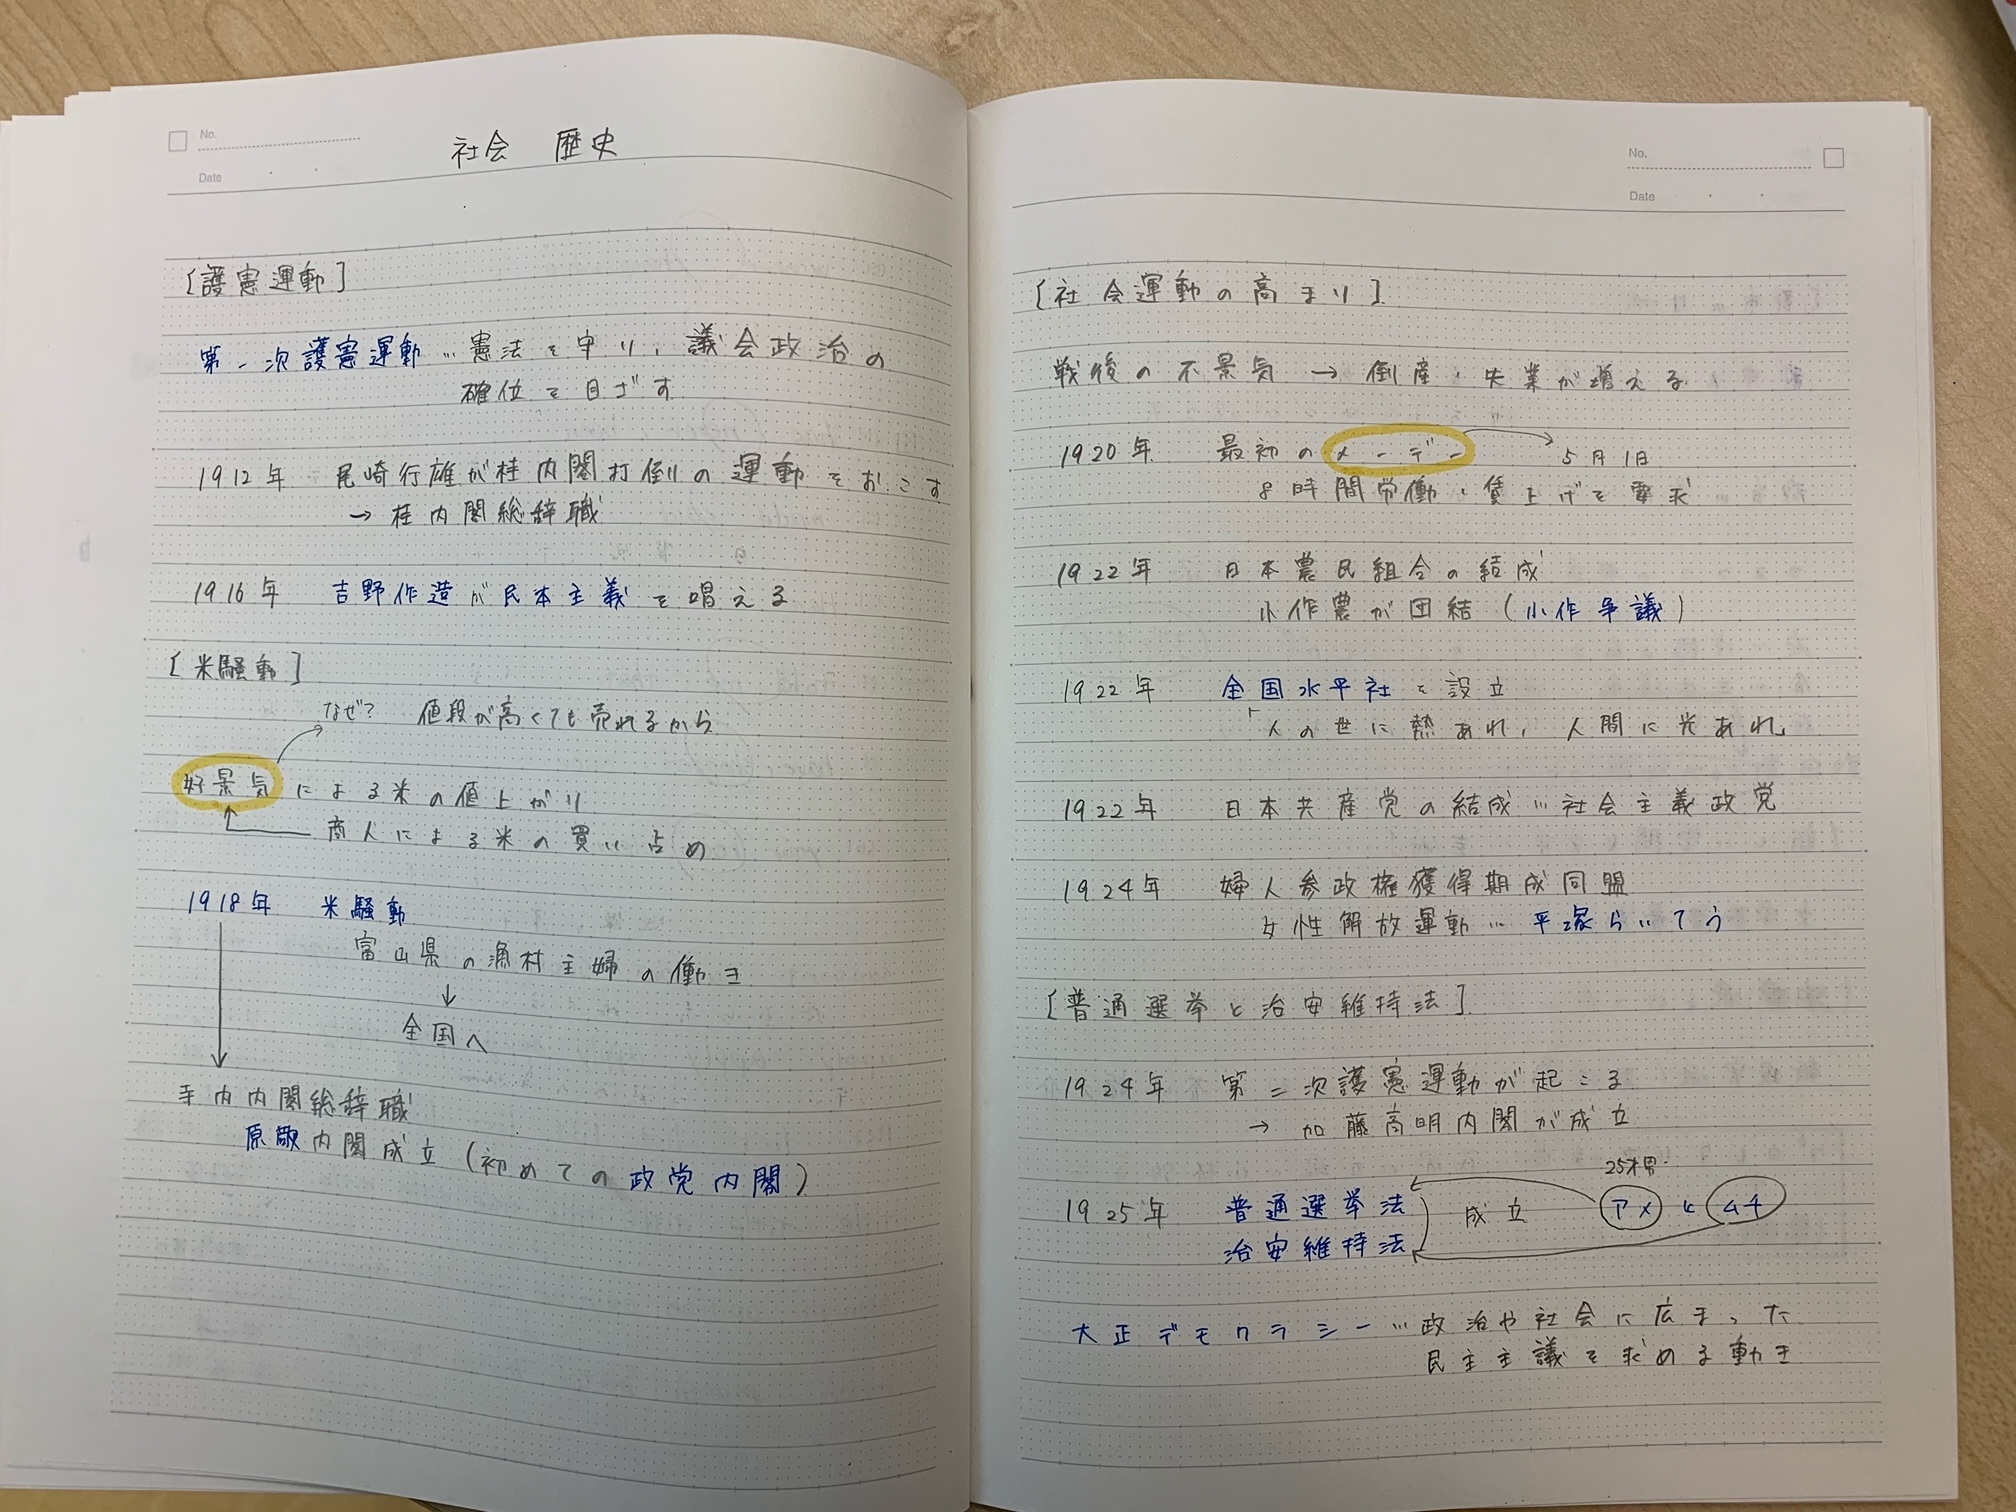 No.
Date
社会 歴史
[護憲運動]
第一次護憲運動…憲法を守り、議会政治の
確位を目ざす
1912年 尾崎行雄が桂内閣打倒の運動をおこす
→ 桂内閣総辞職
1916年 吉野作造が民本主義を唱える
[米騒動]
なぜ? 値段が高くても売れるから
好景気による米の値上がり
商人による米の買い占め
1918年 米騒動
富山県の漁村主婦の働き
↓
全国へ
寺内内閣総辞職
原敬内閣成立(初めての政党内閣)
No.
Date
[社会運動の高まり]
戦後の不景気 → 倒産・失業が増える
1920年 最初のメーデー 5月1日
8時間労働・賃上げを要求
1922年 日本農民組合の結成
小作農が団結(小作争議)
1922年 全国水平社を設立
「人の世に熱あれ、人間に光あれ」
1922年 日本共産党の結成…社会主義政党
1924年 婦人参政権獲得期成同盟
女性解放運動…平塚らいてう
[普通選挙と治安維持法]
1924年 第二次護憲運動が起こる
→ 加藤高明内閣が成立
25才男
1925年 普通選挙法 成立 アメとムチ
治安維持法
大正デモクラシー…政治や社会に広まった
民主主義を求める動き